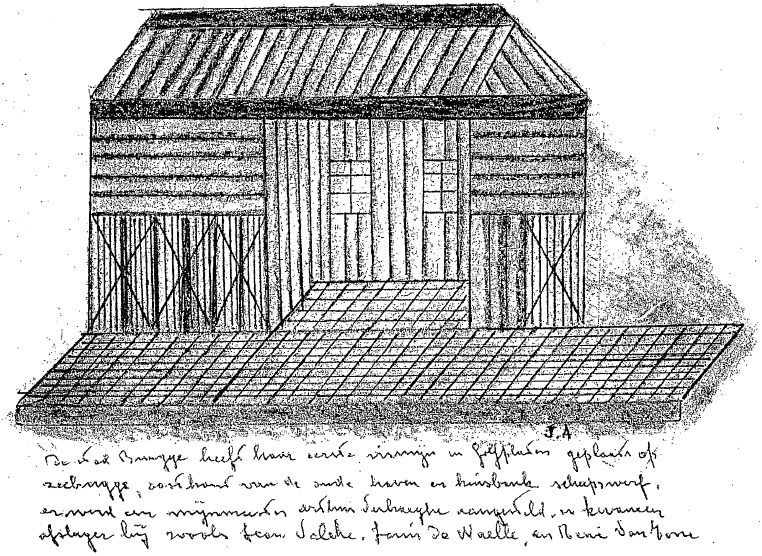 J.A
De stad Brugge heeft haar eerste vismijn in golfplaten geplaatst op
zeebrugge, oostkant van de oude haven en huisbenk scheepswerf.
er werd een mijnmeester Arthur Verhaeghe aangesteld. en kwamen
afslager bij zoals Leon Valcke. Janis De Waelle, en René Van